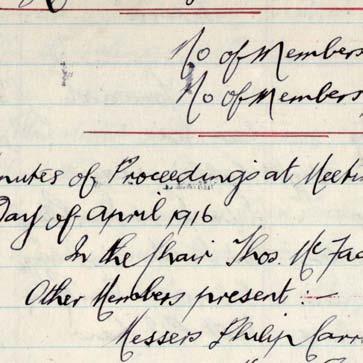 No of Members
No of Members
nutes of Proceedings at Meetin
Day of April 1916
In the Chair Thos. Mc Fad
Other Members present :-
Messers Philip Carr